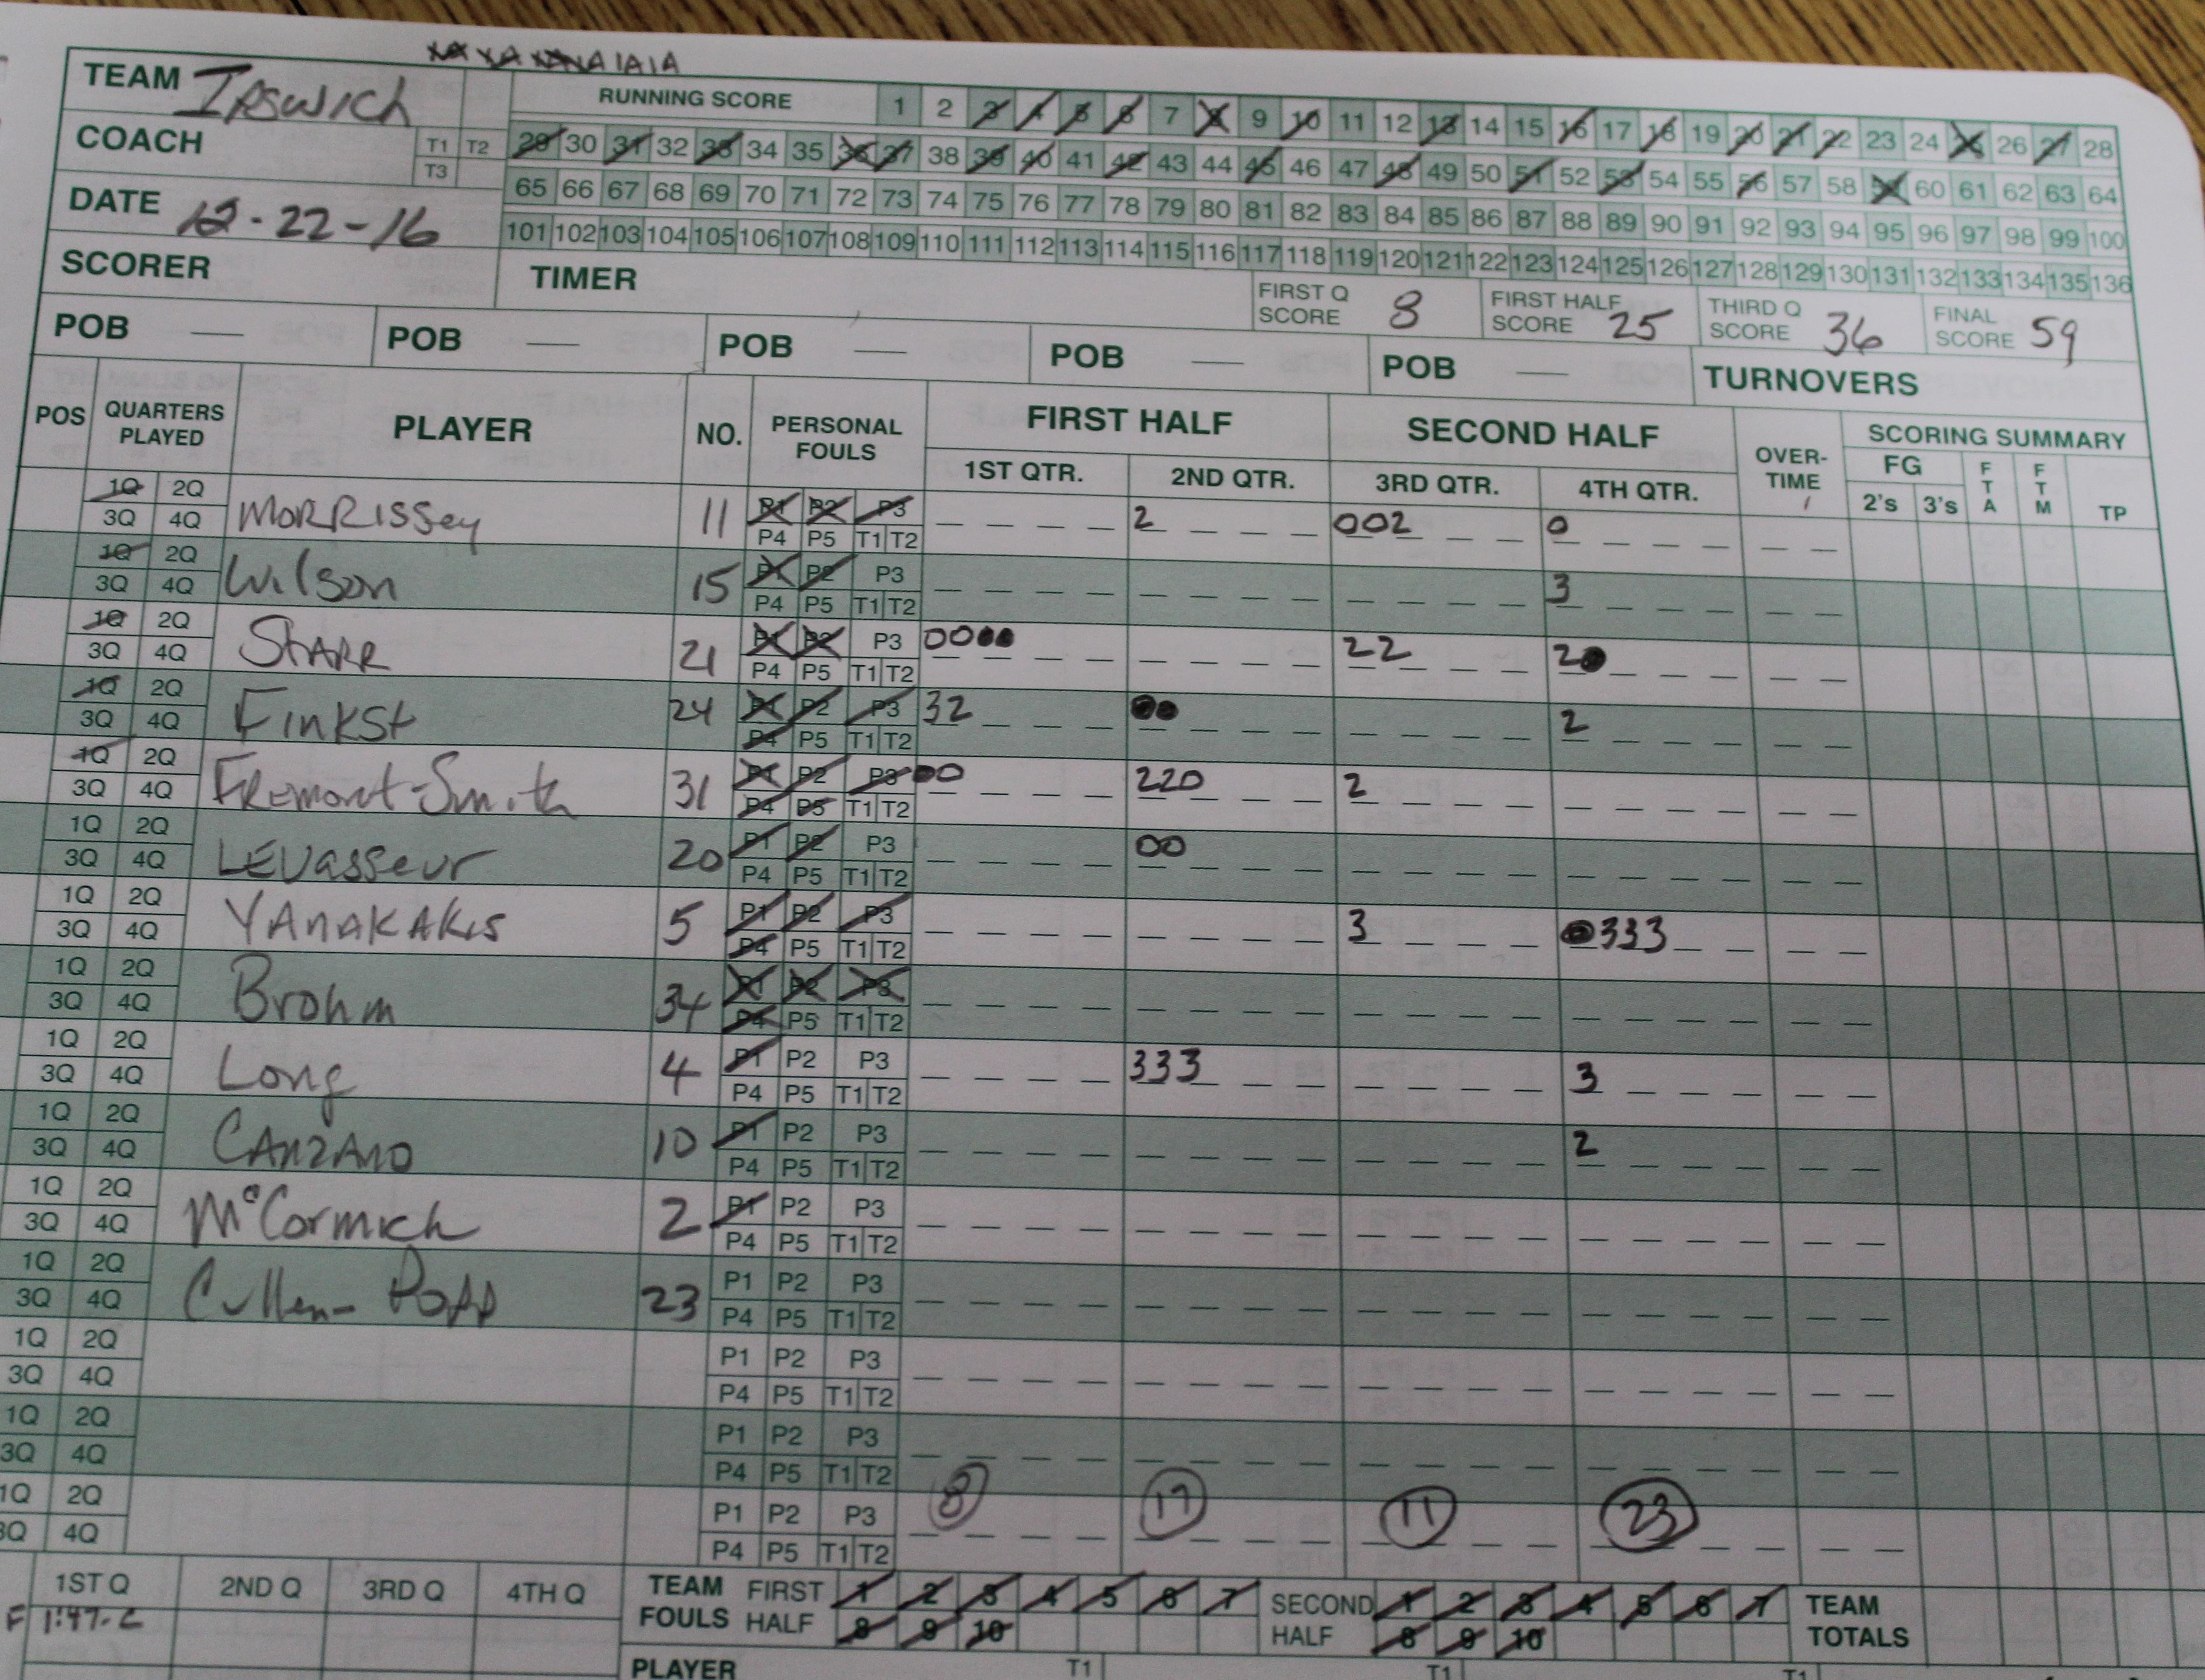 XA XA XAXA 1A 1A
TEAM Ipswich
COACH T1 T2 T3
DATE 12-22-16
SCORER
TIMER
RUNNING SCORE 1 2 3 4 5 6 7 8 9 10 11 12 13 14 15 16 17 18 19 20 21 22 23 24 25 26 27 28
29 30 31 32 33 34 35 36 37 38 39 40 41 42 43 44 45 46 47 48 49 50 51 52 53 54 55 56 57 58 59 60 61 62 63 64
65 66 67 68 69 70 71 72 73 74 75 76 77 78 79 80 81 82 83 84 85 86 87 88 89 90 91 92 93 94 95 96 97 98 99 100
101 102 103 104 105 106 107 108 109 110 111 112 113 114 115 116 117 118 119 120 121 122 123 124 125 126 127 128 129 130 131 132 133 134 135 136
FIRST Q SCORE 8 FIRST HALF SCORE 25 THIRD Q SCORE 36 FINAL SCORE 59
POB — POB — POB — POB — POB — TURNOVERS
POS QUARTERS PLAYED PLAYER NO. PERSONAL FOULS FIRST HALF SECOND HALF OVER-TIME SCORING SUMMARY
1ST QTR. 2ND QTR. 3RD QTR. 4TH QTR. FG 2's 3's FTA FTM TP
1Q 2Q MORRISSEY 11 P1 P2 P3 2 002 0
3Q 4Q P4 P5 T1 T2
1Q 2Q Wilson 15 P1 P2 P3 3
3Q 4Q P4 P5 T1 T2
1Q 2Q STARR 21 P1 P2 P3 00●● 22 2●
3Q 4Q P4 P5 T1 T2
1Q 2Q FINKST 24 P1 P2 P3 32 ●● 2
3Q 4Q P4 P5 T1 T2
1Q 2Q FREMONT-Smith 31 P1 P2 P3 ●0 220 2
3Q 4Q P4 P5 T1 T2
1Q 2Q LEVasseur 20 P1 P2 P3 00
3Q 4Q P4 P5 T1 T2
1Q 2Q YANAKAKIS 5 P1 P2 P3 3 ●333
3Q 4Q P4 P5 T1 T2
1Q 2Q Brohm 34 P1 P2 P3
3Q 4Q P4 P5 T1 T2
1Q 2Q Long 4 P1 P2 P3 333 3
3Q 4Q P4 P5 T1 T2
1Q 2Q CANZANO 10 P1 P2 P3 2
3Q 4Q P4 P5 T1 T2
1Q 2Q McCormick 2 P1 P2 P3
3Q 4Q P4 P5 T1 T2
1Q 2Q Cullen- Popp 23 P1 P2 P3
3Q 4Q P4 P5 T1 T2
1Q 2Q P1 P2 P3
3Q 4Q P4 P5 T1 T2
1Q 2Q P1 P2 P3
3Q 4Q P4 P5 T1 T2
1Q 2Q P1 P2 P3 8 17 11 23
3Q 4Q P4 P5 T1 T2
1ST Q 2ND Q 3RD Q 4TH Q TEAM FOULS FIRST HALF 1 2 3 4 5 6 7 SECOND HALF 1 2 3 4 5 6 7 TEAM TOTALS
F 1:47.2 8 9 10 8 9 10
PLAYER T1 T1 T1